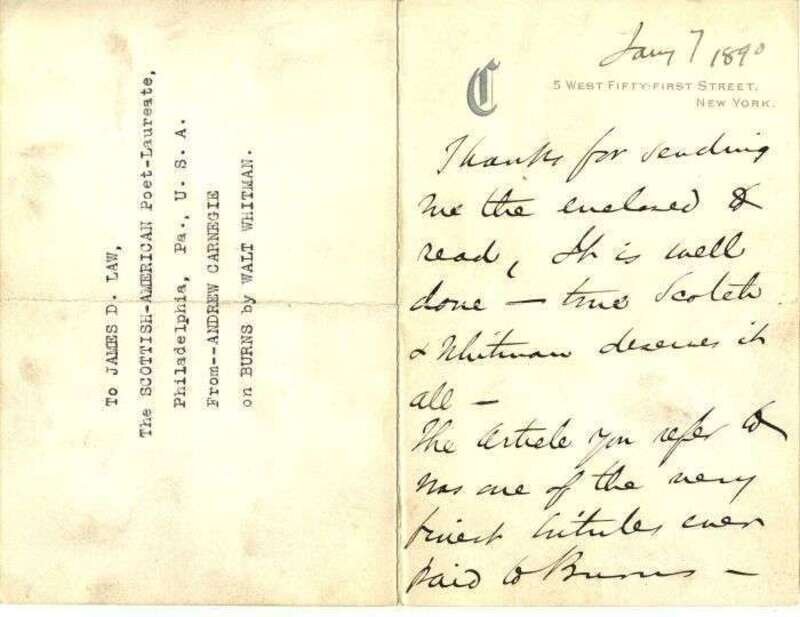 To JAMES D. LAW,
The SCOTTISH-AMERICAN Poet-Laureate,
Philadelphia, Pa., U. S. A.
From--ANDREW CARNEGIE
on BURNS by WALT WHITMAN.
Jany 7 1890
C
5 WEST FIFTY-FIRST STREET.
NEW YORK.
Thanks for sending
me the enclosed to
read, It is well
done — true Scotch
& Whitman deserves it
all —
The Article you refer to
was one of the very
finest tributes ever
paid to Burns —